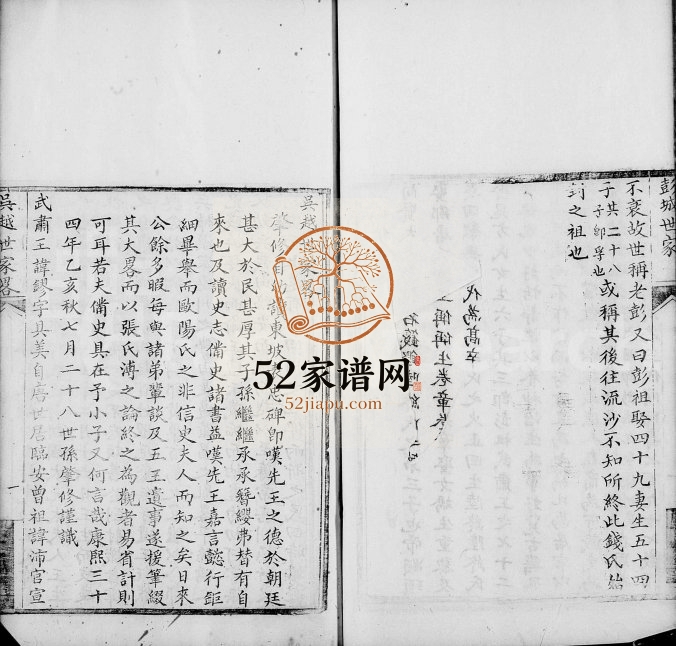 彭城世家
不衰故世稱老彭又曰彭祖娶四十九妻生五十四
子其二十八子卽孚也或稱其後往流沙不知所終此錢氏始
封之祖也
代為高辛
吳越世家畧
肇修自幼讀東坡表忠碑卽嘆先王之德於朝廷
甚大於民甚厚其子孫繼繼承承簪纓弗替有自
來也及讀史志備史諸書益嘆先王嘉言懿行鉅
細畢舉而歐陽氏之非信史夫人而知之矣日來
公餘多暇每與諸弟輩談及五王遺事遂援筆綴
其大畧而以張氏溥之論終之為觀者易省計則
可耳若夫備史具在予小子又何言哉康熙三十
四年乙亥秋七月二十八世孫肇修謹識
武肅王諱鏐字具美自唐世居臨安曾祖諱沛官宣
吳越世家畧
一
52家谱网
52jiapu.com